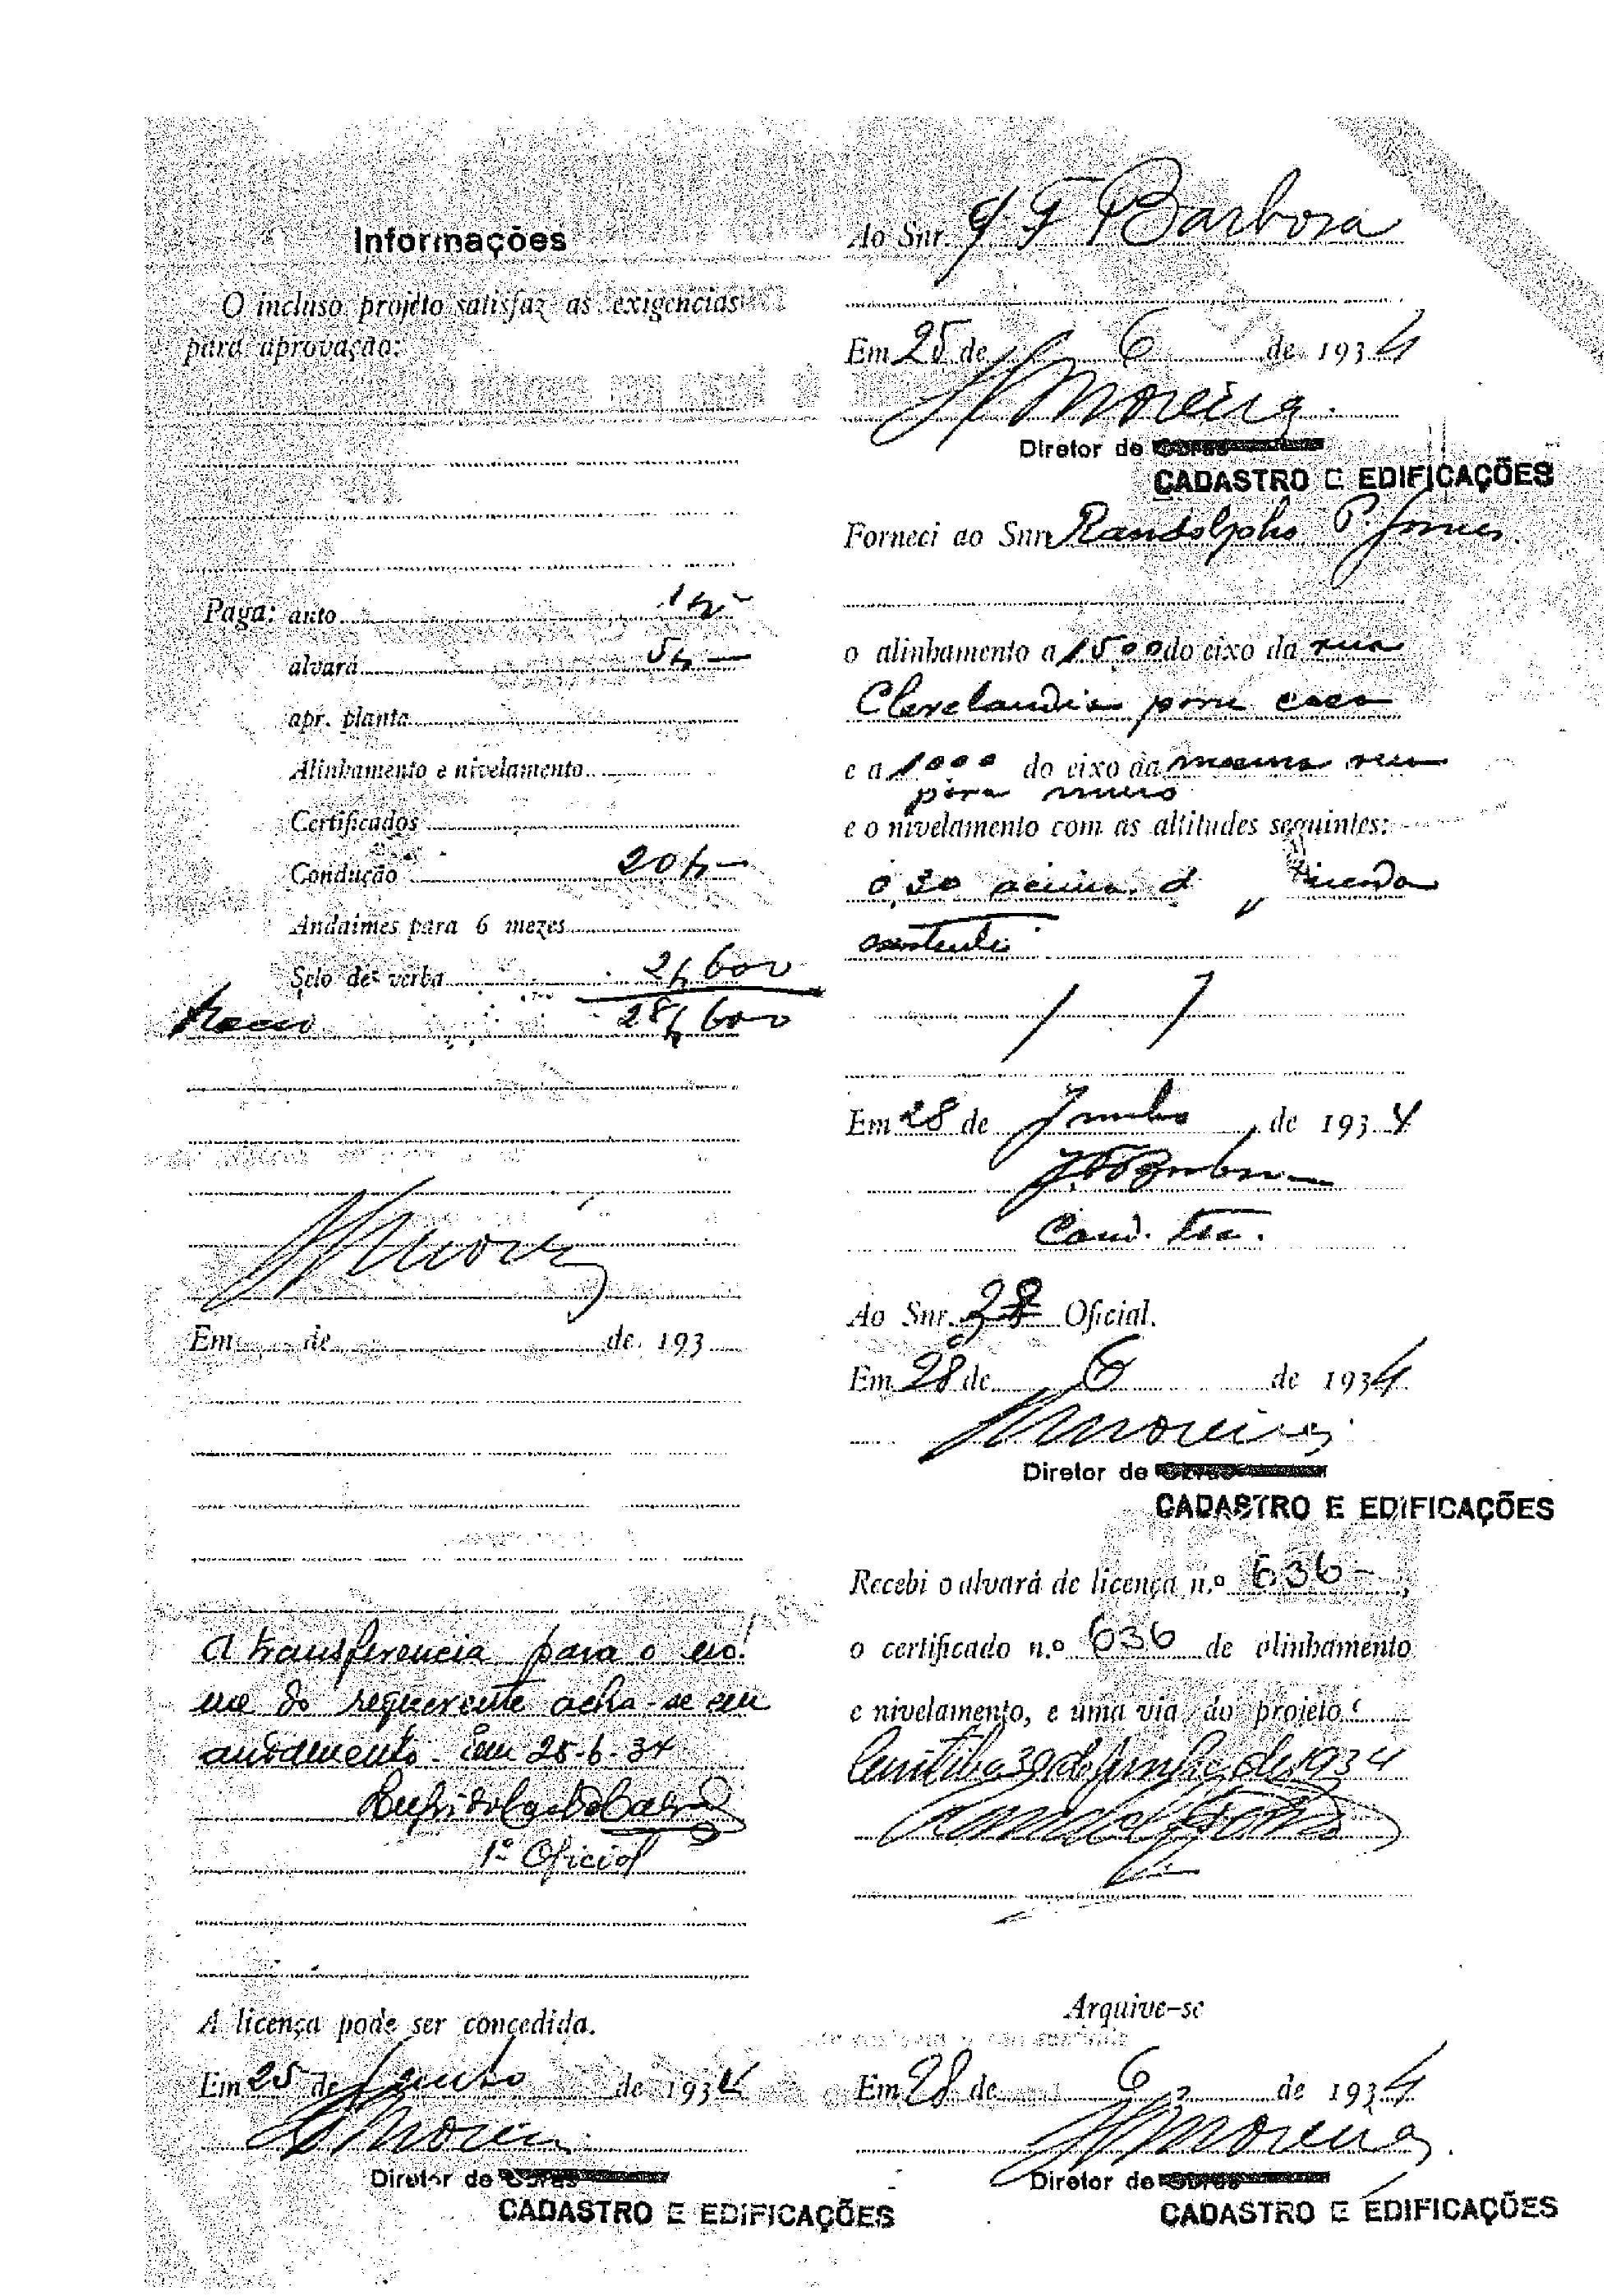 Informações
O incluso projéto satisfaz as exigencias
para aprovação:
Paga: auto 1$
alvará 5$—
apr. planta
Alinhamento e nivelamento
Certificados
Condução 20$—
Andaimes para 6 mezes
Selo de verba 2$600
28$600
Em de de 193
A transferencia para o no-
me do requerente acha-se em
andamento. Em 25-6-34
1º Oficial
A licença pode ser concedida.
Em 25 de Junho de 1934
Moreira
Diretor de Obras
CADASTRO E EDIFICAÇÕES
Ao Snr. J F Barbosa
Em 25 de 6 de 1934
Moreira
Diretor de Obras
CADASTRO E EDIFICAÇÕES
Forneci ao Snr. Randolpho P. Gomes
o alinhamento a 1500 do eixo da rua
Clevelandia para casa
e a 1000 do eixo da mesma rua
para muro
e o nivelamento com as altitudes seguintes:
0,30 acima d
Em 28 de Junho de 1934
J. F. Barbosa
Cond. Tec.
Ao Snr. Oficial.
Em 28 de 6 de 1934
Moreira
Diretor de Obras
CADASTRO E EDIFICAÇÕES
Recebi o alvará de licença n.º 636—,
o certificado n.º 636 de alinhamento
e nivelamento, e uma via do projéto
Curitiba 30 de Junho de 1934
Arquive-se
Em 28 de 6 de 1934
Moreira
Diretor de Obras
CADASTRO E EDIFICAÇÕES